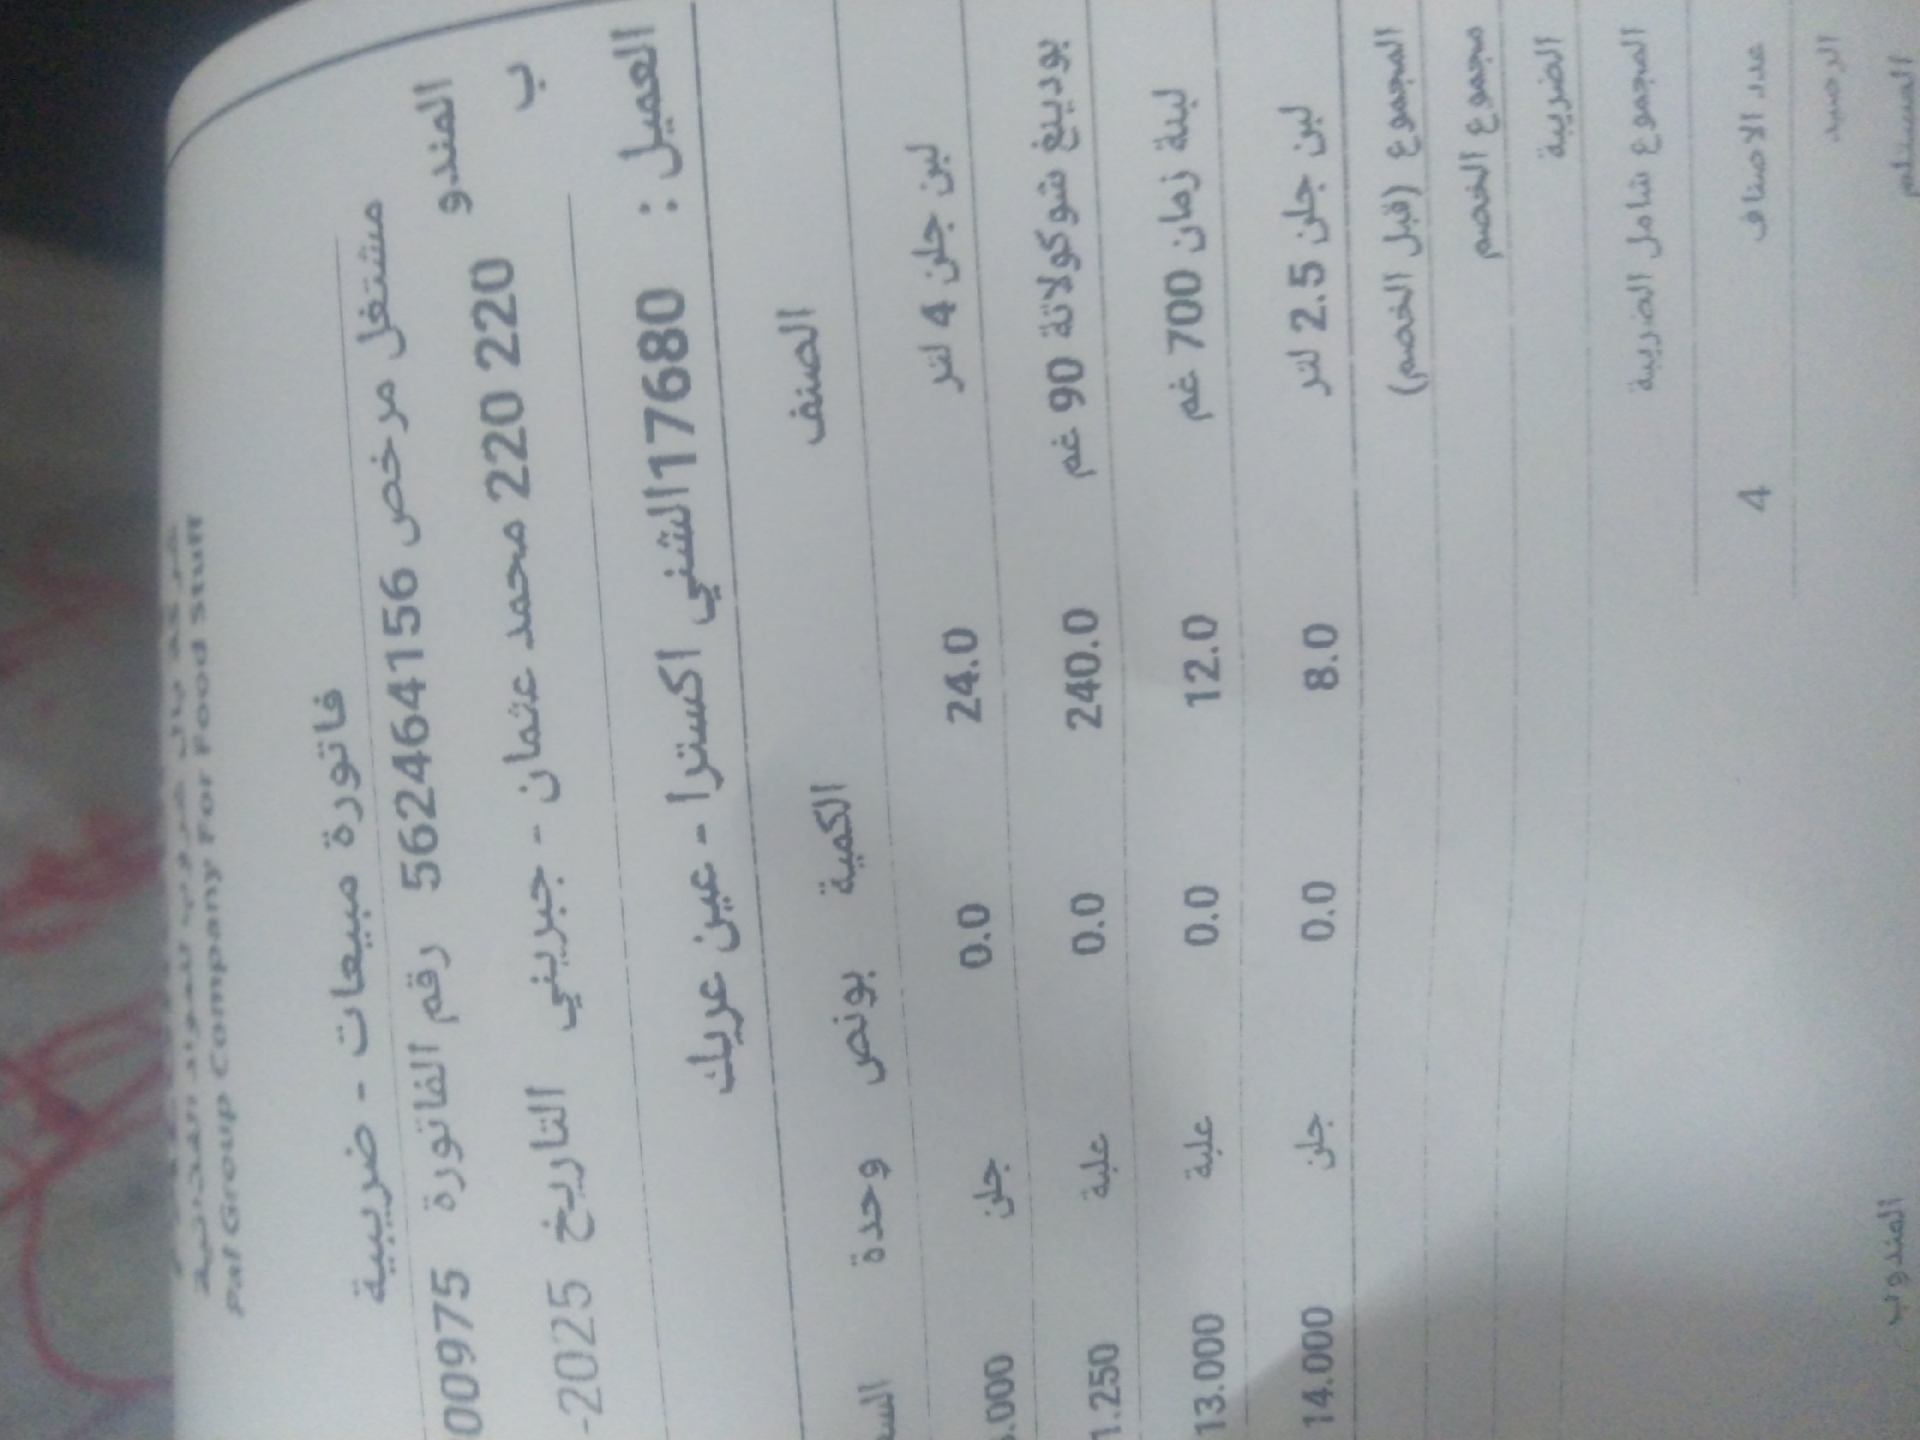 شركة بال جروب للمواد الغذائية
Pal Group Company For Food Stuff
فاتورة مبيعات - ضريبية
مشتغل مرخص 562464156 رقم الفاتورة 00975
المندو
ب 220 220 محمد عثمان - جبريني التاريخ 2025-
العميل : 17680الشني اكسترا - عين عريك
الصنف الكمية بونص وحدة الس
لبن جلن 4 لتر 24.0 0.0 جلن .000
بودينغ شوكولاتة 90 غم 240.0 0.0 علبة 1.250
لبنة زمان 700 غم 12.0 0.0 علبة 13.000
لبن جلن 2.5 لتر 8.0 0.0 جلن 14.000
المجموع (قبل الخصم)
مجموع الخصم
الضريبة
المجموع شامل الضريبة
عدد الاصناف 4
الرصيد
المستلم المندوب